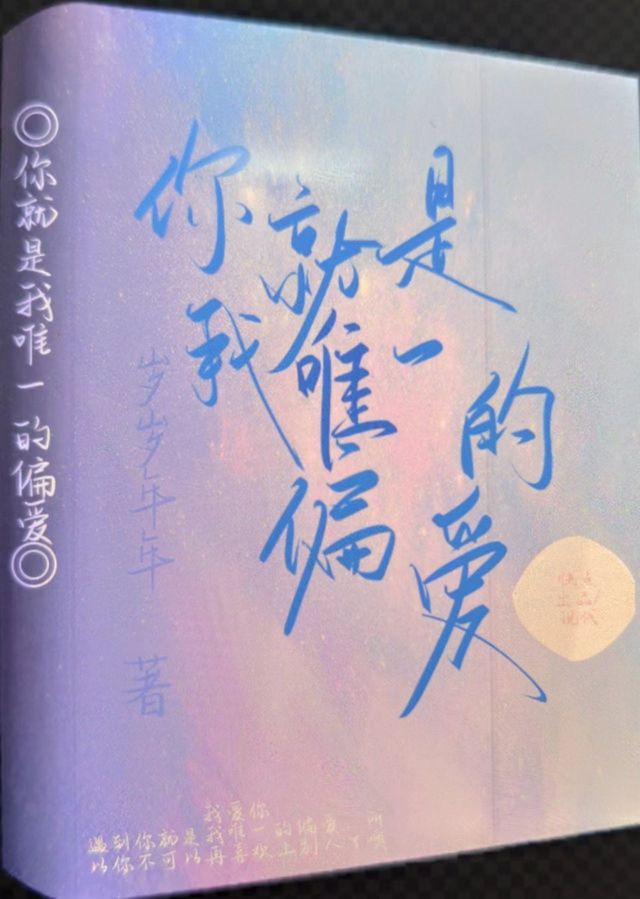 ◎你就是我唯一的偏爱◎
你就是
我唯一的
偏爱
岁岁年年 著
我爱你
遇到你就是我唯一的偏爱 所
以你不可以再喜欢上别人了哦